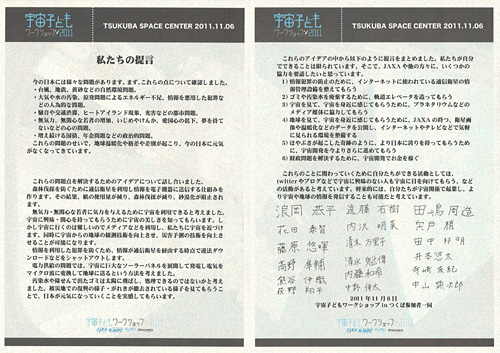 宇宙子ども
ワークショップ 2011
TSUKUBA SPACE CENTER 2011.11.06
私たちの提言
今の日本には様々な問題があります。まず、これらの点について確認しました。
・台風、地震、黄砂などの自然環境問題。
・人気や水の汚染、原発問題によるエネルギー不足、情報を悪用した犯罪な
どの人為的な問題。
・騒音や交通渋滞、ヒートアイランド現象、光害などの都市問題。
・無気力、無関心な若者の増加、いじめやけんか、愛国心の低下、夢を持て
ないなどの心の問題。
・増え続ける国債、年金問題などの政治的問題。
これらの問題のせいで、地球温暖化や格差や差別が起こり、今の日本に元気
がなくなってきています。
これらの問題点を解決するためのアイデアについて話し合いました。
森林伐採を防ぐために通信衛星を利用し情報を電子機器に送信する仕組みを
作ります。その結果、紙の使用量が減り、森林伐採が減り、砂漠化が防止され
ます。
無気力・無関心な若者に気力を与えるために宇宙を利用できると考えました。
宇宙に興味・関心を持ってもらうために宇宙の美しさを知ってもらいます。しか
し宇宙に行くのは難しいのでメディアなどを利用し、私たちに宇宙を近づけ
ます。同時に宇宙からの地球の観測技術を向上させ、異常予測の技術を向上さ
せることが可能になります。
情報を利用した犯罪を防ぐため、情報が通信衛星を経由する時点で違法ダウ
ンロードなどをシャットアウトします。
電力供給の問題では、宇宙に巨大なソーラーパネルを展開して発電し電気を
マイクロ波に変換して地球に送るという方法を考えました。
汚染水や溶けんで出たゴミは太陽に飛ばし、処理できるのではないかと考え
ました。被災地での復興の様子・がれきが撤去されている様子を見てもらうこ
とで、日本が元気になっていくことを実感してもらいます。
宇宙子どもワークショップ 2011
宇宙子ども
ワークショップ 2011
TSUKUBA SPACE CENTER 2011.11.06
これらのアイデアの中から以下のように提言をまとめました。私たちが自分で
できることは限られています。そこで、JAXAや他の方々に、いくつかの協
力を要請したいと思っています。
1) 情報犯罪の防止のために、インターネットに使われている通信衛星の情
報管理設備を整えてもらう
2) ゴミや汚染水を廃棄するために、軌道エレベータを造ってもらう
3) 宇宙を見て、宇宙を身近に感じてもらうために、プラネタリウムなどの
メディア媒体に協力してもらう
4) 地球を見て、宇宙を身近に感じてもらうために、JAXAの持つ、衛星画
像や温暖化などのデータを公開し、インターネットやテレビなどで気軽
に見られる環境を整備する
5) はやぶさが起こした奇跡のように、より日本に誇りを持ってもらうため
に、宇宙開発を今よりさらに進めてもらう
6) 財政問題を解決するために、宇宙開発でお金を稼ぐ
これらのことに関わっていくために自分たちができる活動としては、
twitterやブログなどで宇宙に興味のない人も宇宙に目を向けてもらう、など
の活動があると考えています。将来的には、自分たちが宇宙関係で起業し、よ
り宇宙や地球の情報を発信することも可能だと考えています。
浪岡 恭平 遠藤 右樹 田嶋 周造
花田 泰智 内沢 明未 宍戸 樹
藤原 悠暉 清水 万里子 田中 邦明
井本 悠太
内藤 和希 寺崎 友紀
荻野 翔平 中野 伸太 中山 奨次郎
2011年11月6日
宇宙子どもワークショップ in つくば参加者一同
宇宙子どもワークショップ 2011